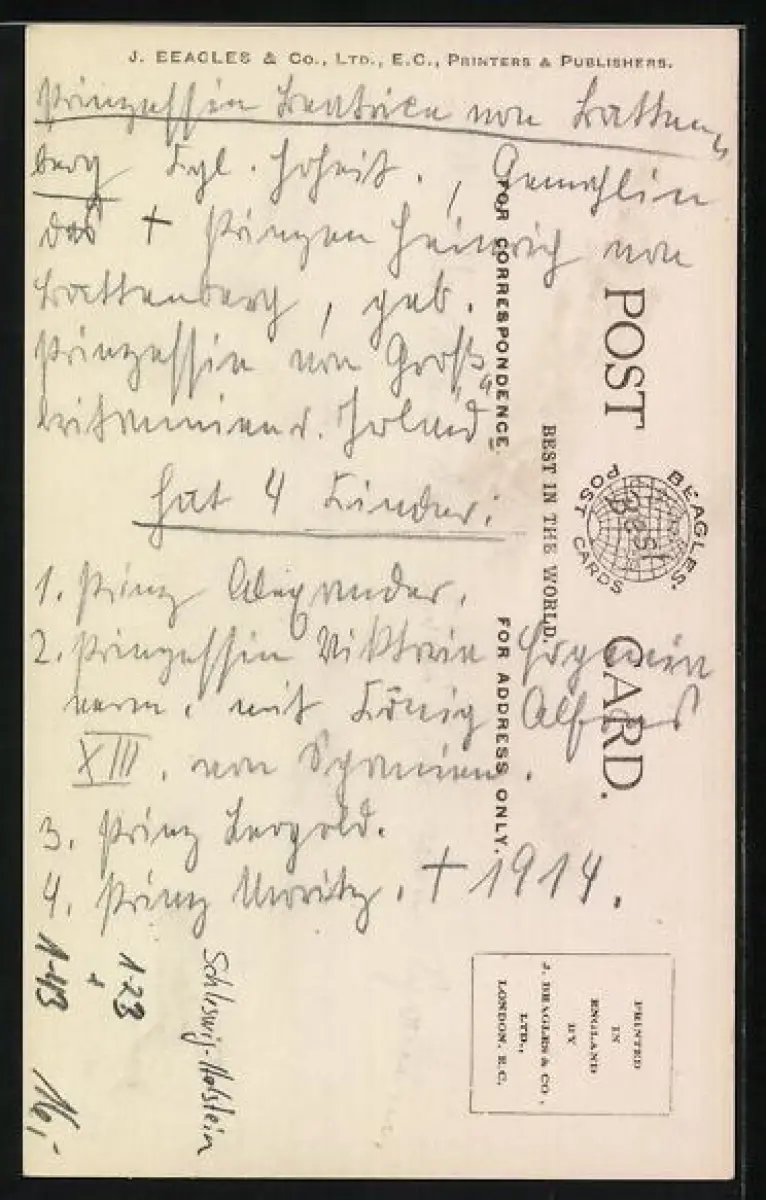 J. BEAGLES & Co., LTD., E.C., PRINTERS & PUBLISHERS.
Prinzessin Beatrice von Batten-
berg Kgl. Hoheit., Gemahlin
des + Prinzen Heinrich von
Battenberg, geb.
Prinzessin von Groß-
britannien u. Irland
hat 4 Kinder:
1. Prinz Alexander.
2. Prinzessin Viktoria Eugenien
verm. mit König Alfons
XIII. von Spanien.
3. Prinz Leopold.
4. Prinz Moritz. + 1914.
POST CARD.
BEAGLES'
Best
POST CARDS
BEST IN THE WORLD.
FOR CORRESPONDENCE.
FOR ADDRESS ONLY.
PRINTED
IN
ENGLAND
BY
J. BEAGLES & CO.,
LTD.,
LONDON, E.C.
Schleswig-Holstein
1-23
1-43
16,-